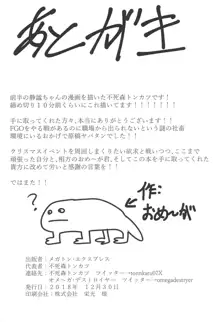 あとがき
前半の静謐ちゃんの漫画を描いた不死森トンカツです!
締め切り10分前くらいにこれ描いてます!!!!!!!
手に取ってくれた方々、本当にありがとうございます!!
FGOをやる暇があるのに職場から出られないという謎の社畜
環境にいるおかげで原稿ヤバタンでした!!
クリスマスイベントを周回しまくりたい欲求と戦いつつ、ここまで
頑張った自分と、相方のおめ〜が君、そしてこの本を手に取ってくれた
貴方に改めて労いと感謝の言葉を!!
ではまた!!
作:
おめんが
出版者:メガトン・エクスプレス
代表者:不死森トンカツ
連絡先:不死森トンカツ ツイッター→
オメ〜ガ・デストロイヤー ツイッター→omegadestryer
発行:2018年 12月30日
印刷会社:株式会社 栄光 様